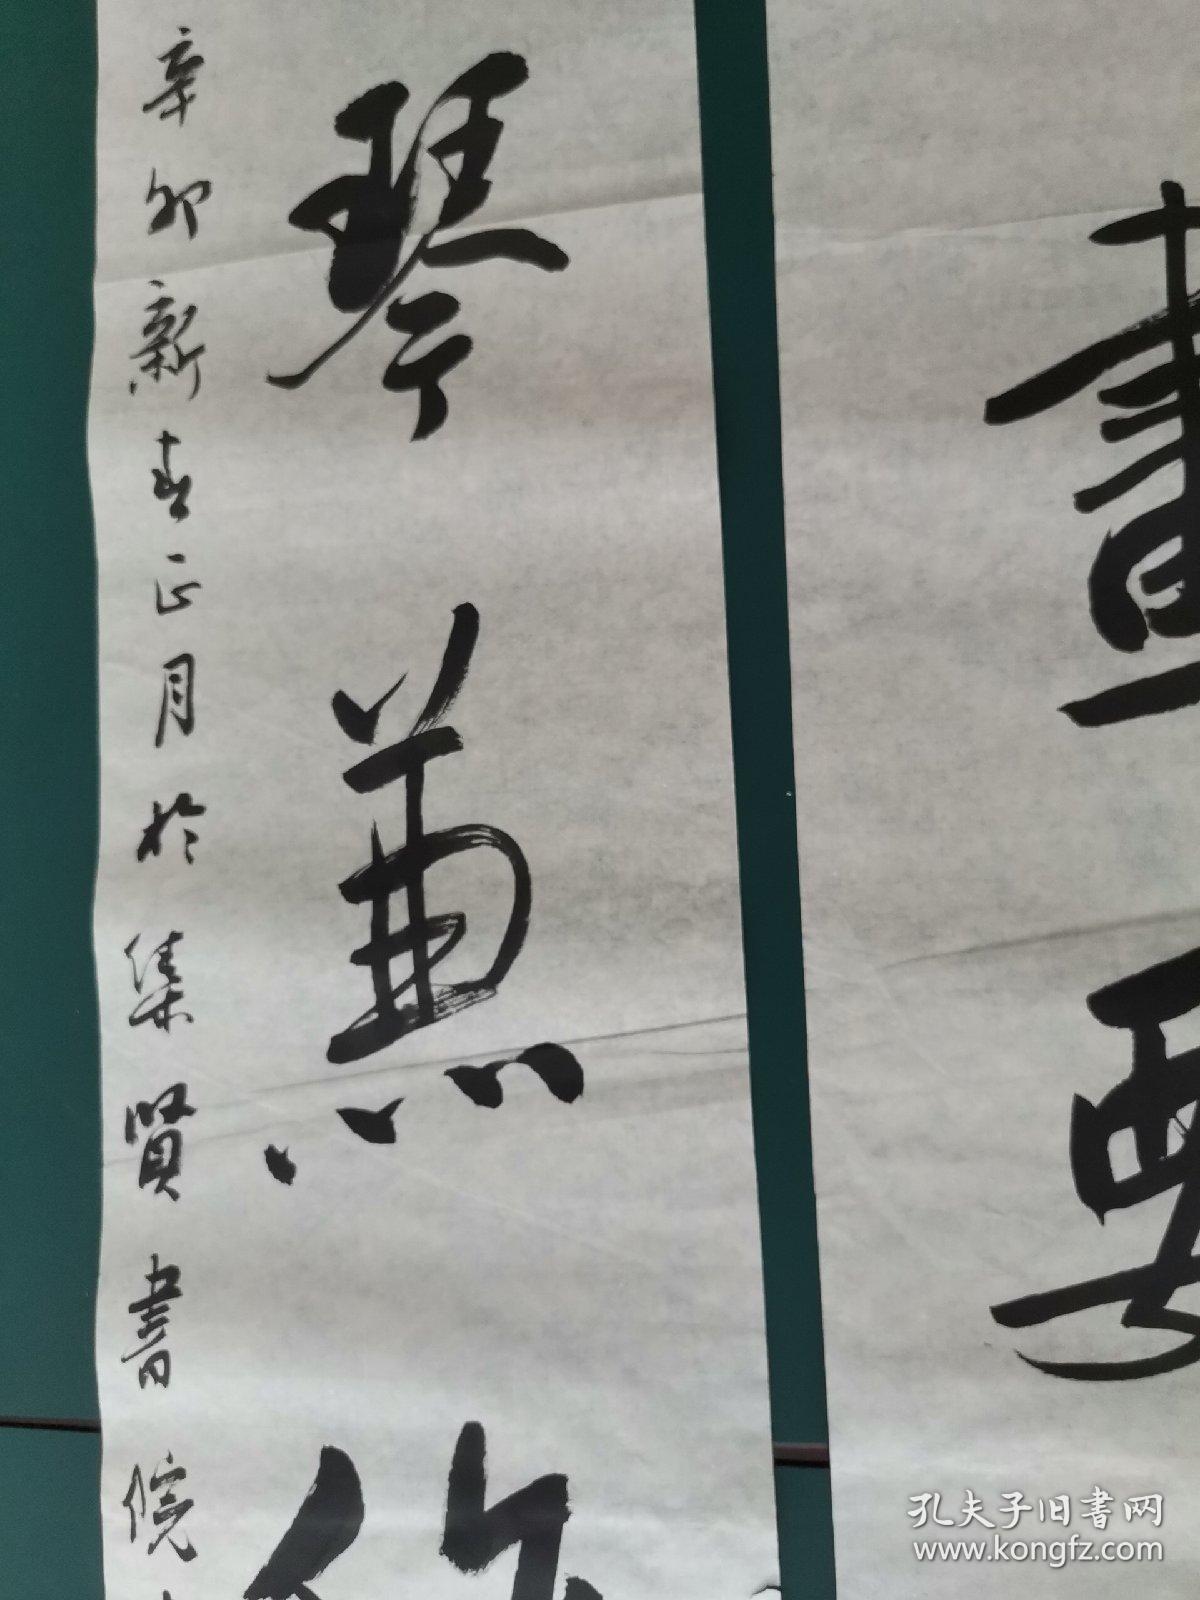 畫要
琴蕉
辛卯新春正月於集賢書院
孔夫子旧书网
www.kongfz.com